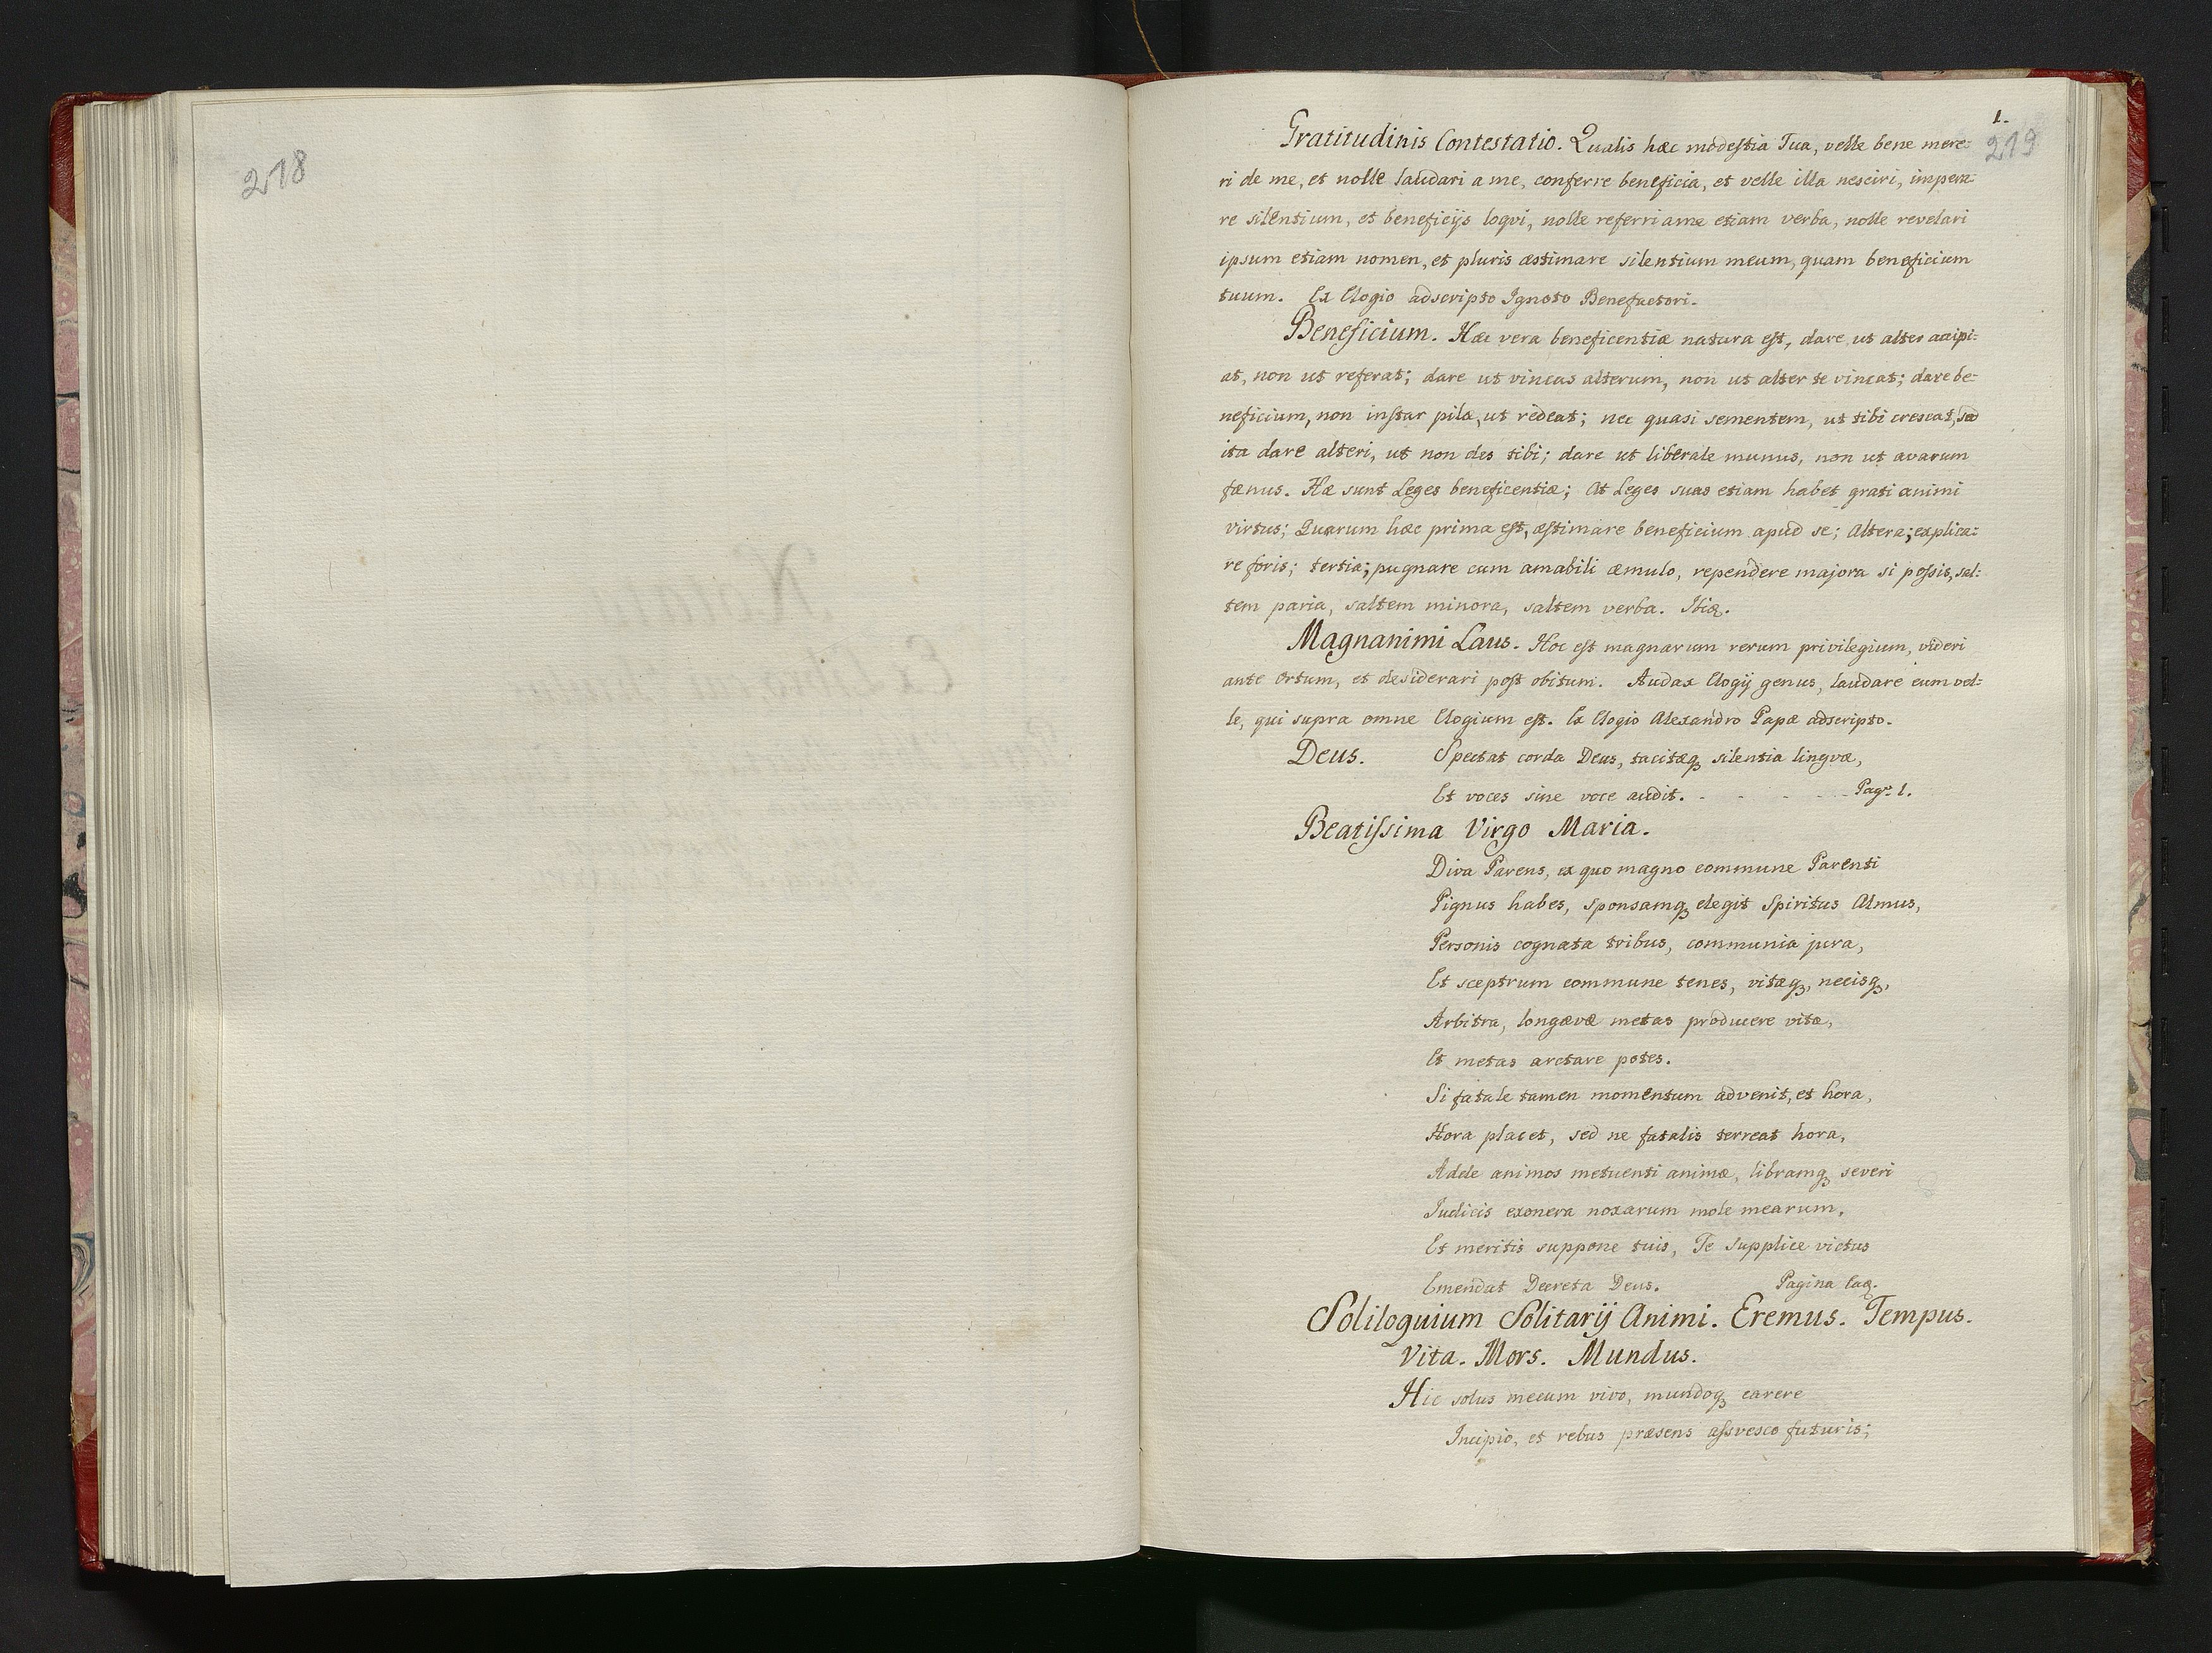 218
1.
219
Gratitudinis Contestatio. Qualis hæc modestia Tua, velle bene mere:
ri de me, et nolle laudari a me, conferre beneficia, et velle illa nesciri, impera:
re silentium, et beneficijs loqvi, nolle referri a me etiam verba, nolle revelari
ipsum etiam nomen, et pluris æstimare silentium meum, quam beneficium
tuum. Ex Elogio adscripto Ignoto Benefactori.
Beneficium. Hæc vera beneficentiæ natura est, dare ut alter accipi:
at, non ut referat; dare ut vincas alterum, non ut alter te vincat; dare be:
neficium, non instar pilæ, ut redeat; nec quasi sementem, ut tibi crescat, sed
ita dare alteri, ut non des tibi; dare ut liberale munus, non ut avarum
fænus. Hæ sunt Leges beneficentiæ; At Leges suas etiam habet grati animi
virtus; Quarum hæc prima est, æstimare beneficium apud se; Altera; explica:
re foris; tertia; pugnare cum amabili æmulo, rependere majora si possis, sal:
tem paria, saltem minora, saltem verba. Ibiq.
Magnanimi Laus. Hoc est magnarum rerum privilegium, videri
ante ortum, et desiderari post obitum. Audax Elogij genus, laudare eum vel:
le, qui supra omne Elogium est. Ex Elogio Alexandro Papæ adscripto.
Deus. Spectat corda Deus, tacitæq3 silentia lingvæ,
Et voces sine voce audit. - - - - - Pag. 1.
Beatissima Virgo Maria.
Diva Parens, ex quo magno commune Parenti
Pignus habes, sponsamq3 elegit Spiritus Almus,
Personis cognata tribus, communia jura,
Et sceptrum commune tenes, vitæq3, necisq3,
Arbitra, longævæ metas producere vitæ,
Et metas arctare potes.
Si fatale tamen momentum advenit, et hora,
Hora placet, sed ne fatalis terreat hora,
Adde animos metuenti animæ, libramq3 severi
Judicis exonera noxarum mole mearum,
Et meritis suppone tuis, Te supplice victus
Emendat Decreta Deus. Pagina eaq.
Soliloquium Solitarij Animi. Eremus. Tempus.
Vita. Mors. Mundus.
Hic solus mecum vivo, mundoq3 carere
Incipio, et rebus præsens assvesco futuris;